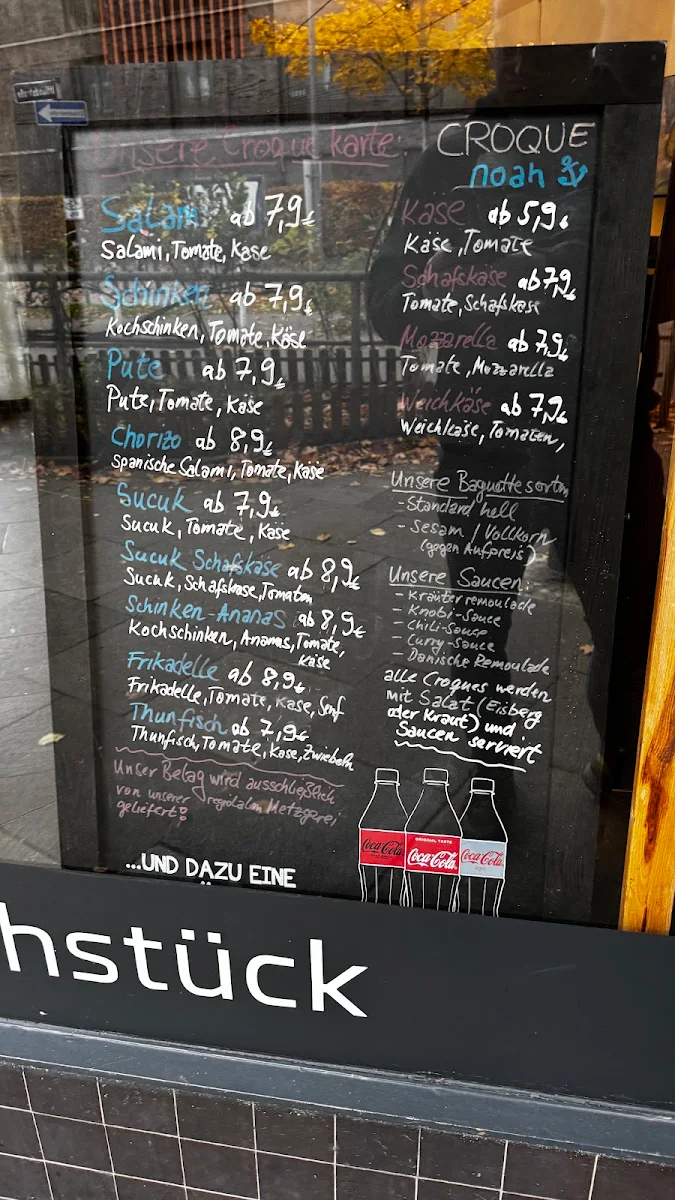 Unsere Croque karte:
Salami ab 7,9€
Salami, Tomate, Käse
Schinken ab 7,9€
Kochschinken, Tomate, Käse
Pute ab 7,9€
Pute, Tomate, Käse
Chorizo ab 8,9€
spanische Salami, Tomate, Käse
Sucuk ab 7,9€
Sucuk, Tomate, Käse
Sucuk Schafskäse ab 8,9€
Sucuk, Schafskäse, Tomaten
Schinken-Ananas ab 8,9€
Kochschinken, Ananas, Tomate,
Käse
Frikadelle ab 8,9€
Frikadelle, Tomate, Käse, Senf
Thunfisch ab 7,9€
Thunfisch, Tomate, Käse, Zwiebeln
Unser Belag wird ausschließlich
von unserer regionalen Metzgerei
geliefert!
...UND DAZU EINE
CROQUE
noah
Käse ab 5,9€
Käse, Tomate
Schafskäse ab 7,9€
Tomate, Schafskäse
Mozzarella ab 7,9€
Tomate, Mozzarella
Weichkäse ab 7,9€
Weichkäse, Tomaten,
Unsere Baguettesorten
- Standard hell
- Sesam / Vollkorn
(gegen Aufpreis)
Unsere Saucen:
- Kräuterremoulade
- Knobi-Sauce
- Chili-Sauce
- Curry-Sauce
- Dänische Remoulade
alle Croques werden
mit Salat (Eisberg
oder Kraut) und
Saucen serviert
Coca-Cola
ORIGINAL TASTE
Coca-Cola
Coca-Cola
hstück